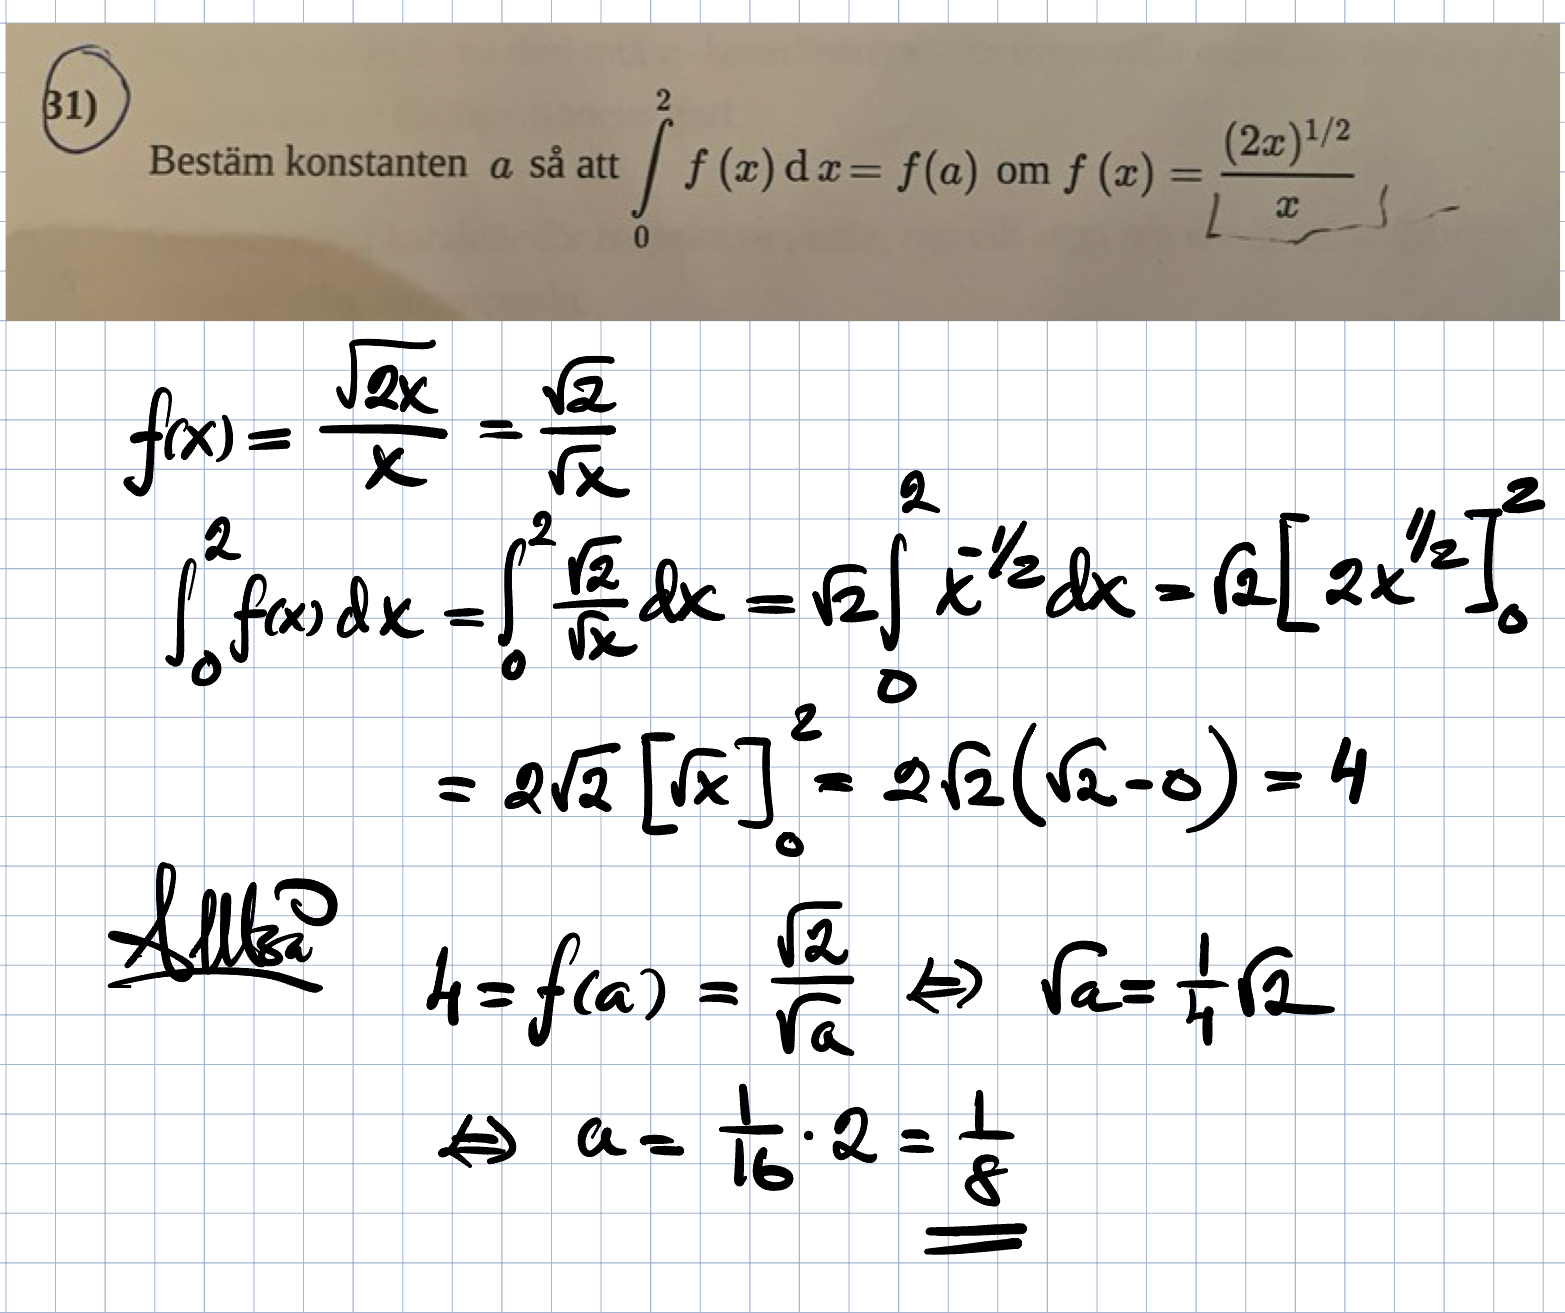 31)
Bestäm konstanten a så att ∫₀² f (x) dx = f(a) om f (x) = (2x)^{1/2} / x
f(x) = √(2x) / x = √2 / √x
∫₀² f(x) dx = ∫₀² √2/√x dx = √2 ∫₀² x^{-1/2} dx = √2 [2x^{1/2}]₀²
= 2√2 [√x]₀² = 2√2 (√2 - 0) = 4
Alltså
4 = f(a) = √2 / √a ⇔ √a = 1/4 √2
⇔ a = 1/16 · 2 = 1/8